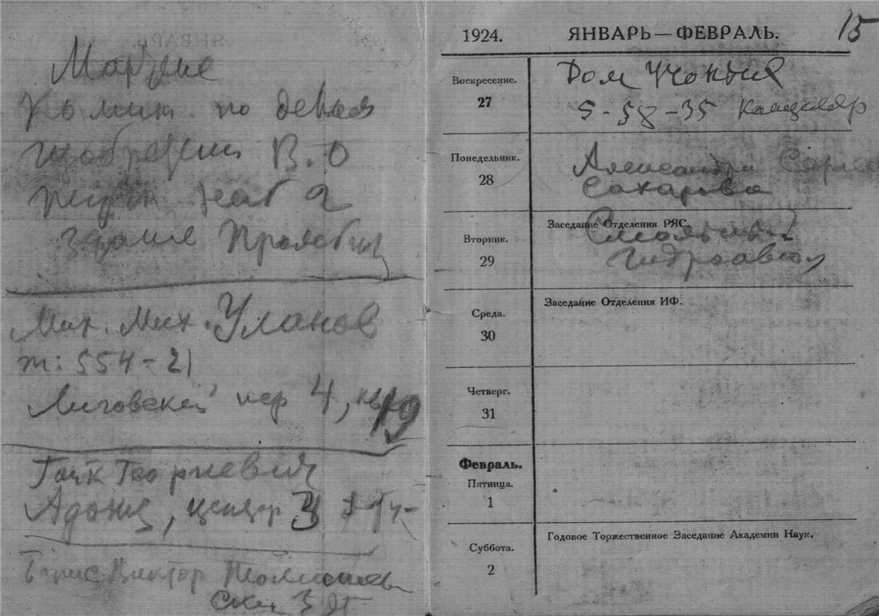 Комит. по делам
изобретений В.О
наб 2
здание
Мих. Мих. Уланов
т: 554-21
Лиговский пер 4, кв 19
Гайк Георгиевич
Адонц, цензор
Борис Виктор
15
1924. ЯНВАРЬ — ФЕВРАЛЬ.
Воскресенье. 27 Дом Учоных
5-58-35 Канцеляр
Понедельник. 28 Александра
Сахарова
Вторник. 29 Заседание Отделения РЯС.
Смольный
Среда. 30 Заседание Отделения ИФ.
Четверг. 31
Февраль.
Пятница. 1
Суббота. 2 Годовое Торжественное Заседание Академии Наук.